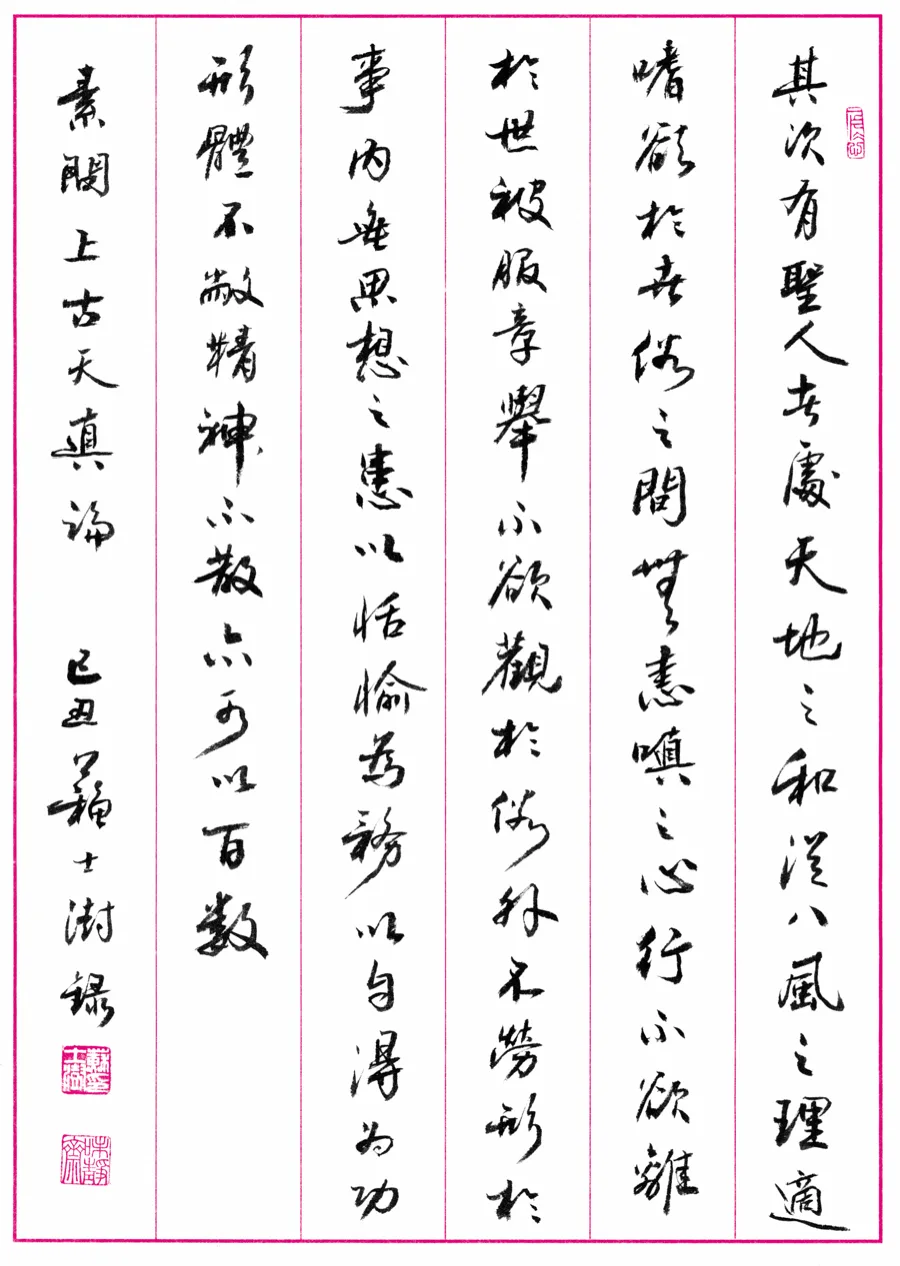 其次有聖人者處天地之和從八風之理適
嗜欲於世俗之間無恚嗔之心行不欲離
於世被服章舉不欲觀於俗外不勞形於
事內無思想之患以恬愉為務以自得為功
形體不敝精神不散亦可以百數
素問上古天真論
己丑蘇士澍錄